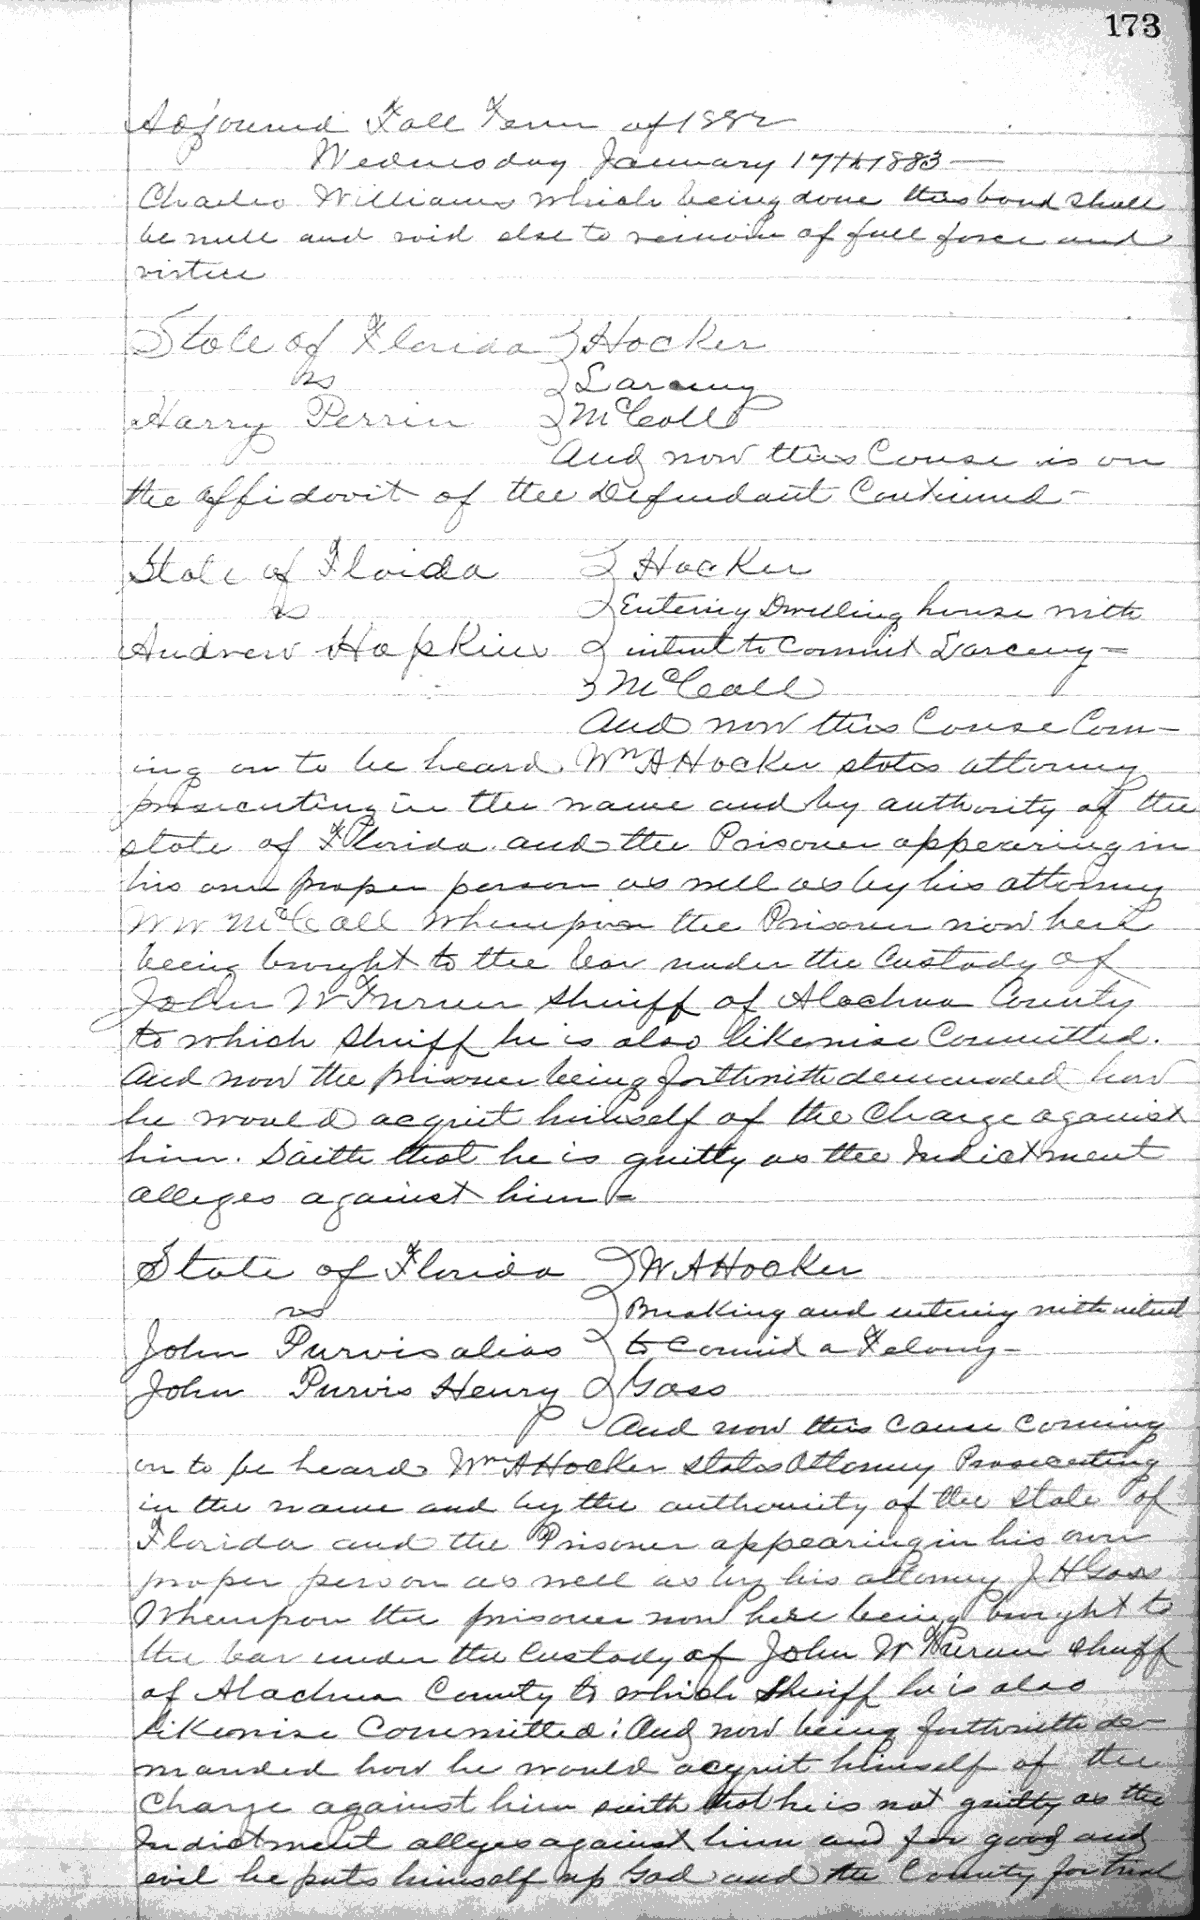 173
Adjourned Fall Term of 1882
Wednesday January 17th 1883—
Charles Williams which being done this bond shall
be null and void else to remain of full force and
virtue
State of Florida } Hocker
vs } Larceny
Harry Perrin } McCall
And now this Couse is on
the affidavit of the Defendant Continued-
State of Florida } Hocker
vs } Entering Dwelling house with
Andrew Hopkins } intent to Commit Larceny=
} McCall
And now this Couse Com-
ing on to be heard. Wm A Hocker states attorney
prosecuting in the name and by authority of the
state of Florida. and the Prisoner appearing in
his own proper person as well as by his attorney
W W McCall Whereupon the Prisoner now here
being brought to the bar under the Custody of
John W Turner Sheriff of Alachua County
to which Sheriff he is also likewise Committed.
And now the prisoner being forthwith demanded how
he would acquit himself of the Charge against
him. Saith that he is guilty as the Indictment
alleges against him=
State of Florida } W A Hocker
vs } Breaking and entering with intent
John Purvis alias } to Commit a Felony-
John Purvis Henry } Goss
And now this Cause Coming
on to be heard Wm A Hocker states Attorney Prosecuting
in the name and by the authourity of the State of
Florida and the Prisoner appearing in his own
proper person as well as by his attorney J H Goss
Whereupon the prisoner now here being brought to
the bar under the Custody of John W Turner Sheriff
of Alachua County to which Sheriff he is also
likewise Committed: And now being forthwith de-
manded how he would acquit himself of the
Charge against him saith that he is not guilty as the
Indictment alleges against him and for good and
evil he puts himself up God and the County for trial